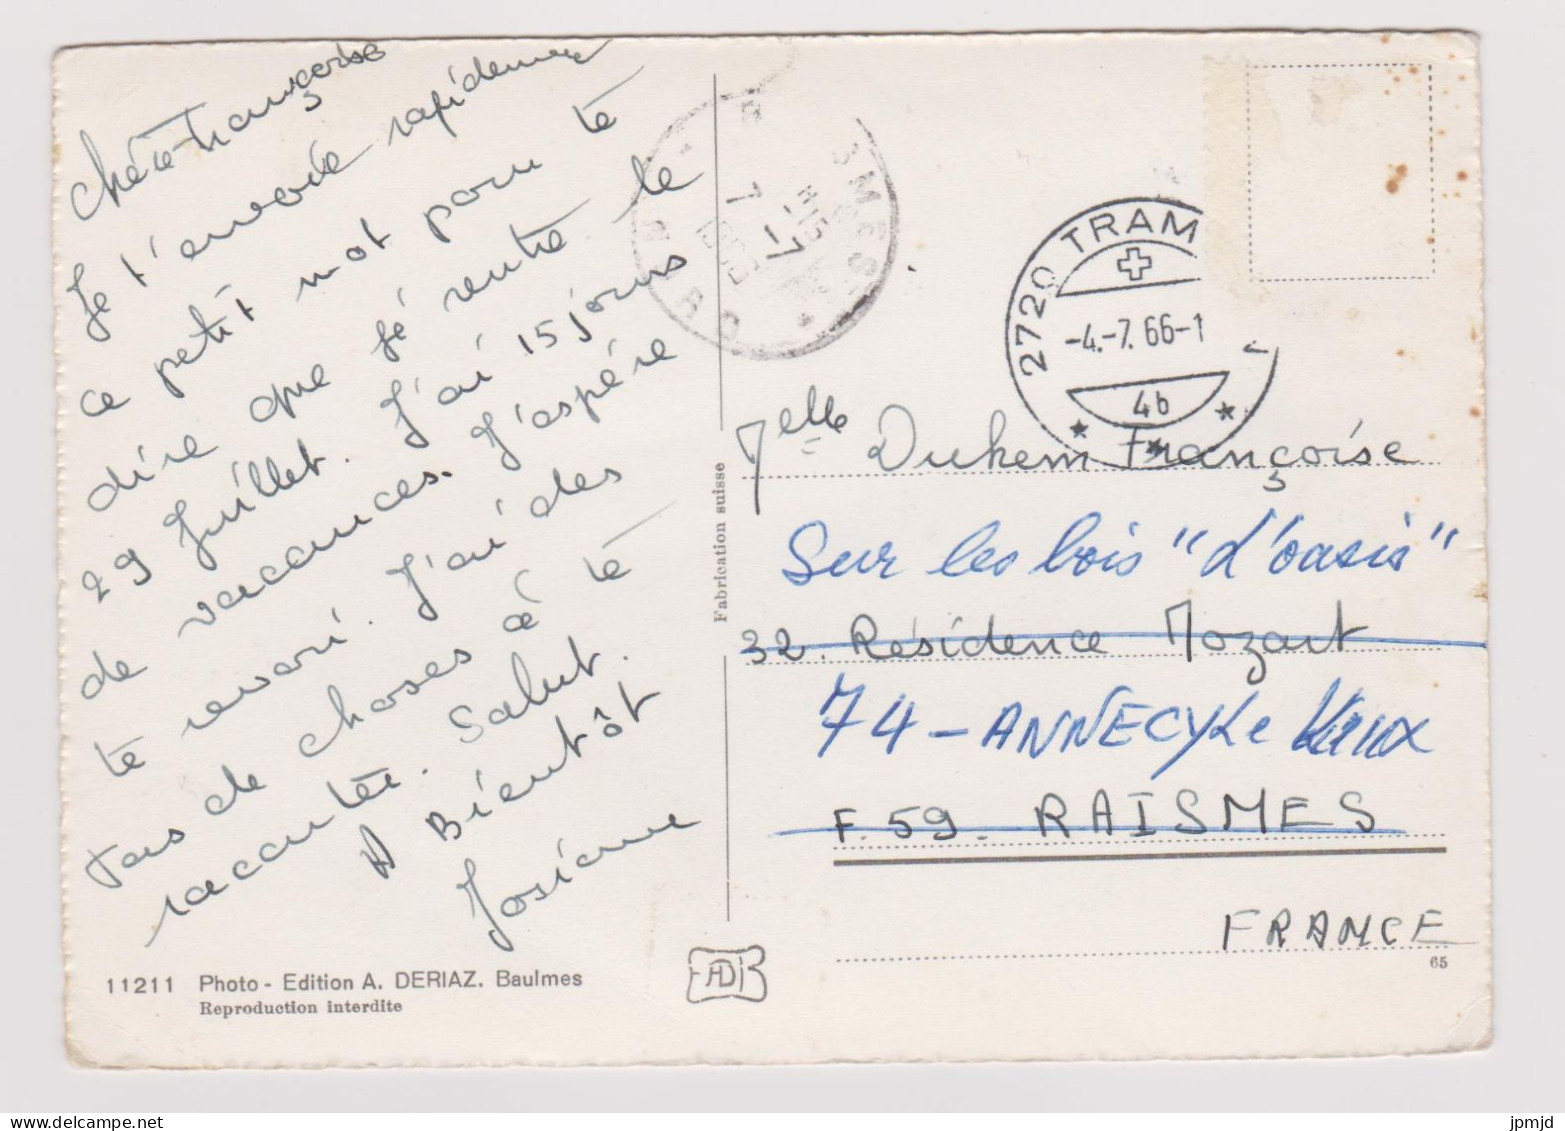 Chére Françoise
Je t'envoie rapidement
ce petit mot pour te
dire que jé rentre le
29 Juillet. J'ai 15 jours
de vacances. J'aspére
te revori. J'ai des
tas de choses à te
raconter. Salut.
A Bientôt
Josiane
11211 Photo - Edition A. DERIAZ. Baulmes
Reproduction interdite
Fabrication suisse
AD
SMES
NORD
7 -7
1966
2720 TRAM
-4.-7. 66-1
4b
Melle Duhem Françoise
Sur les bois "d'oasis"
32. Résidence Mozart
74 - ANNECY Le Vieux
F. 59. RAISMES
FRANCE
65
jpmjd